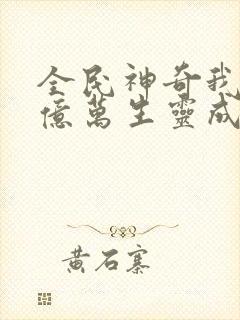 全民神奇我
億萬生靈成
黄石寨